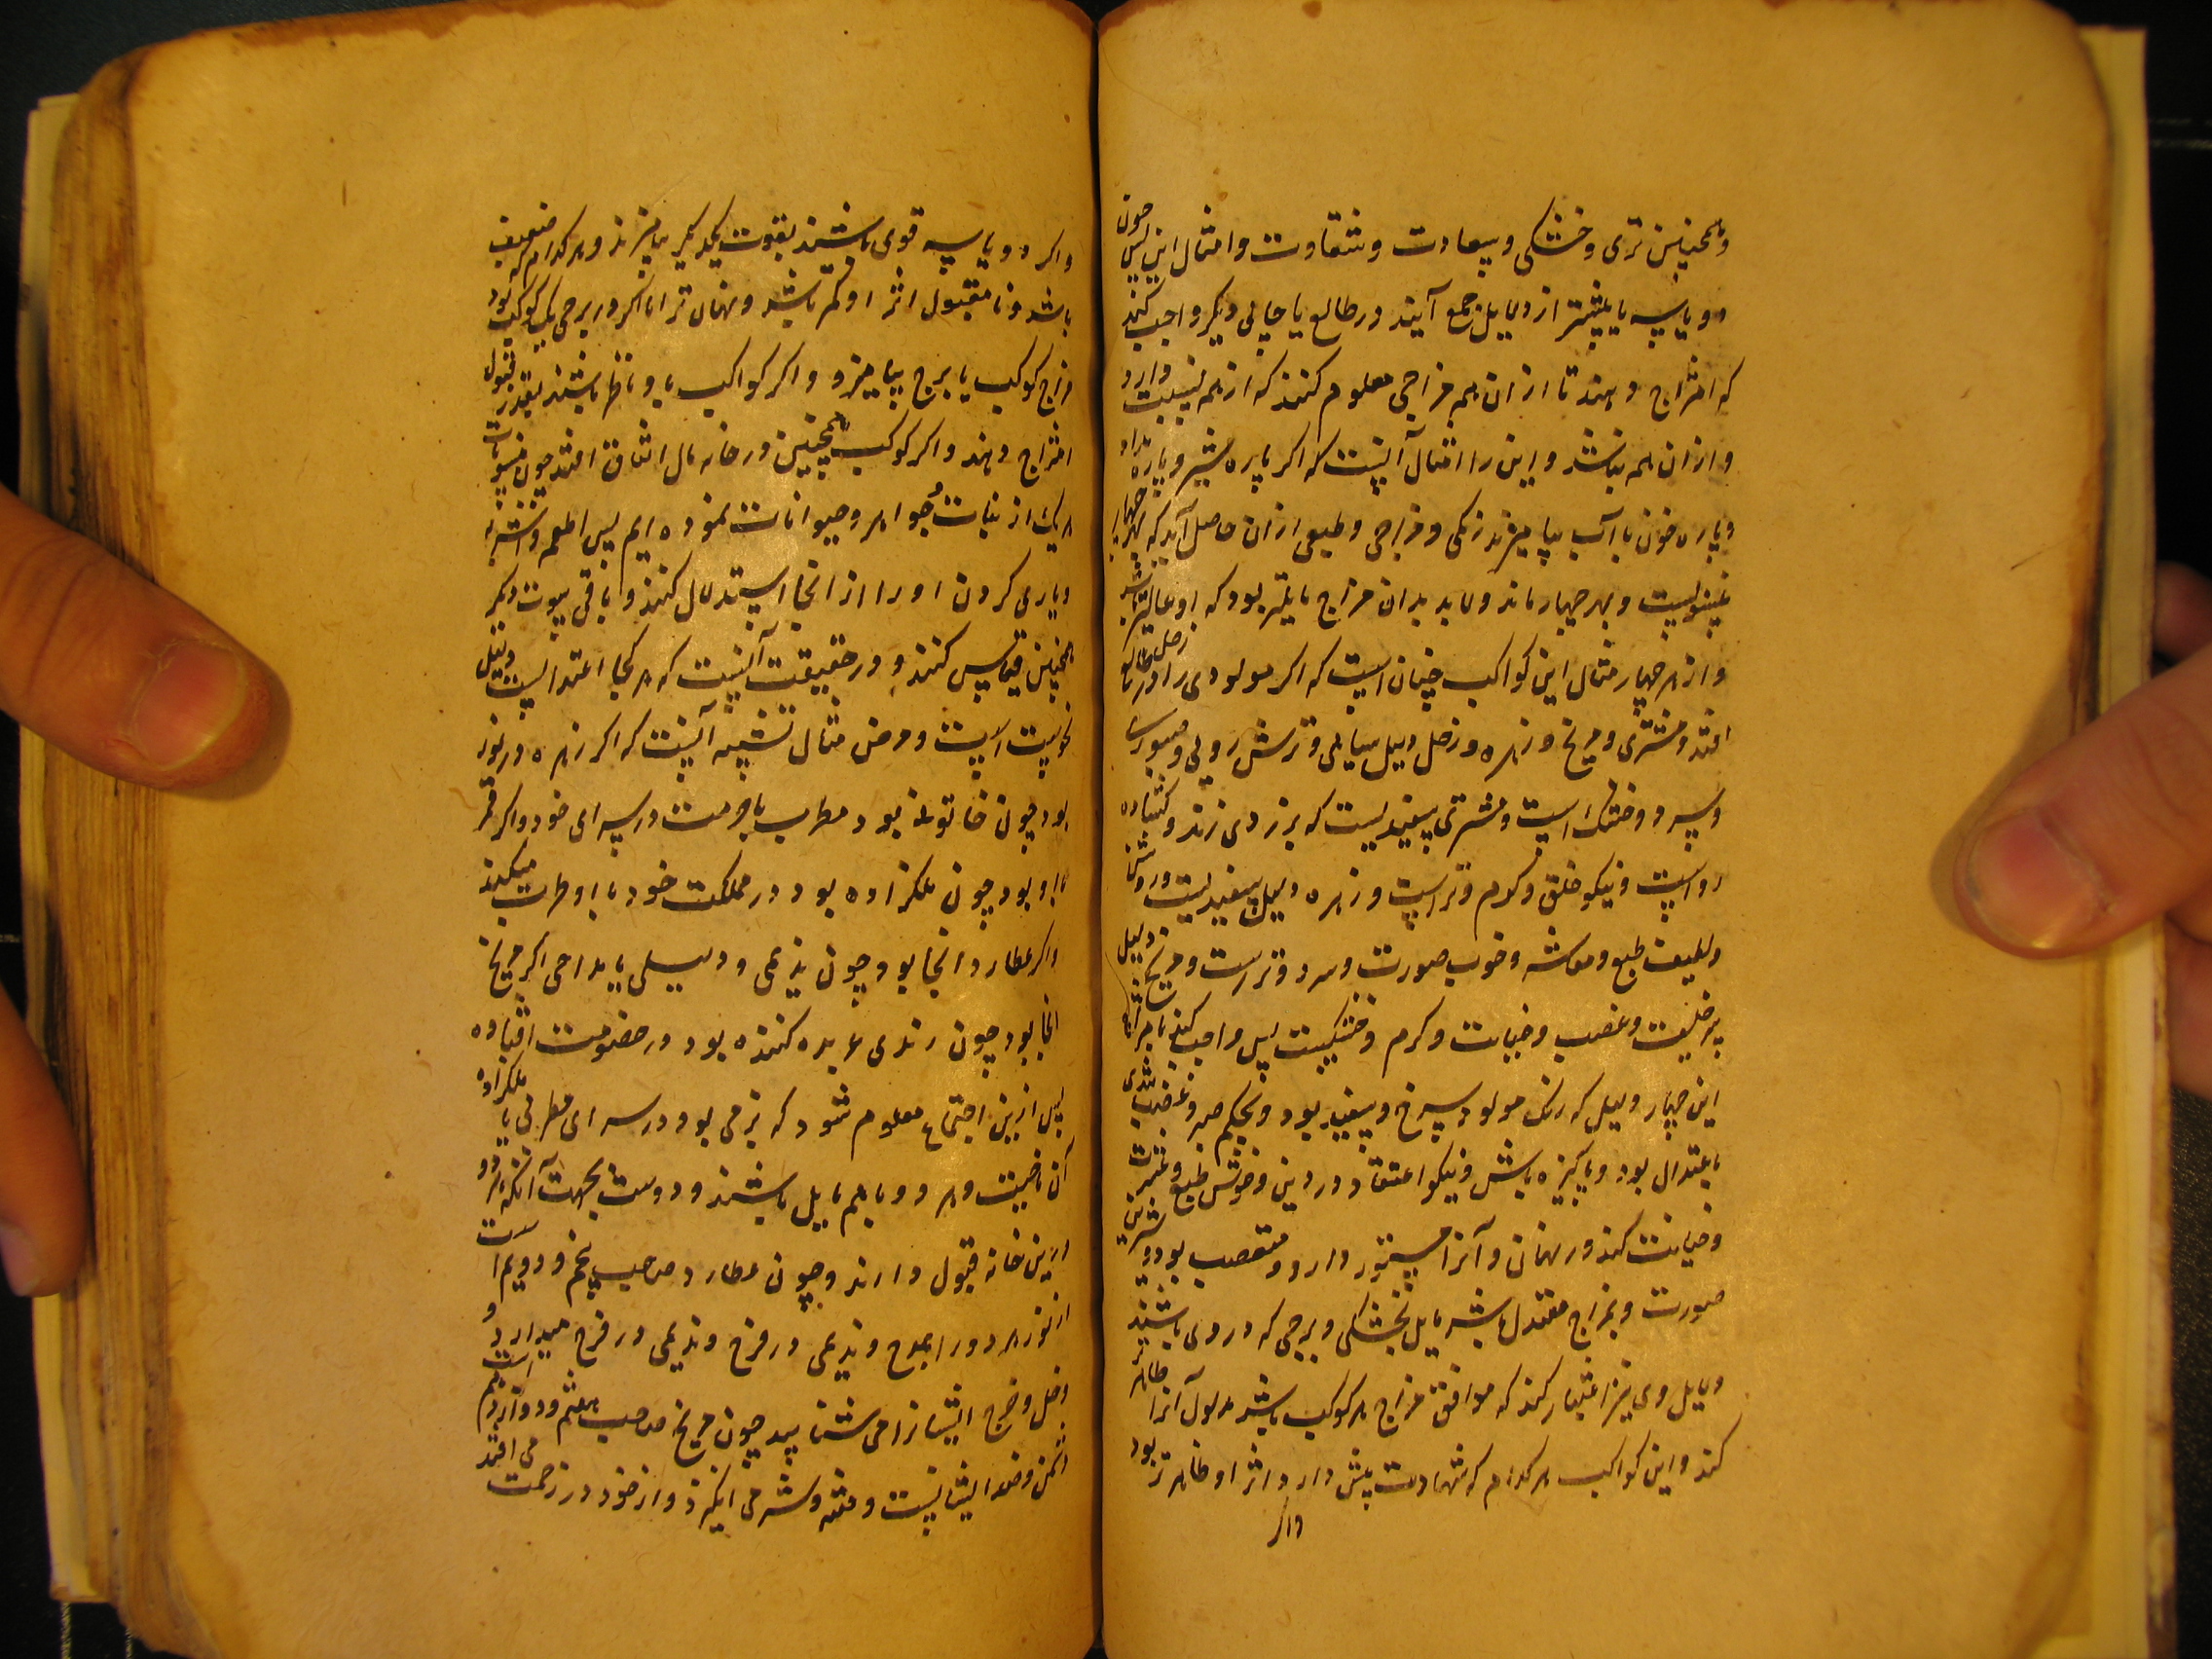 و همچنین تری و خشکی و سعادت و شقاوت و امثال این پس چون
دو یا سه یا بیشتر از دلایل جمع آیند در طالع یا جایی دیگر واجب کند
که امتزاج دهند تا از ان هم مزاجی معلوم کنند که از همه نسبت دارد
و از ان همه نباشد و این را امثال آنست که اگر پاره شیر و پاره مداد
و پاره خون با آب بیامیزند رنگی و مزاجی و طبعی از ان حاصل آید که بهر چهار
منسوبست و بهر چهار ماند ولابد بدان مزاج مایلتر بود که او غالبتر باشد
و از هر چهار مثال این کواکب چنان است که اگر مولودی را در طالع زحل
افتد و مشتری و مریخ و زهره و زحل دلیل سیاهی و ترش رویی و صبوری
و سرد و خشک است و مشتری سفیدیست که بزردی زند و گشاده
رو است و نیکو خلق و گرم و تراست و زهره دلیل سفیدیست و روشن
و لطیف طبع و معاشر و خوب صورت و سرد و تر است و مریخ دلیل
سرخیست و غضب و خیانت و گرم و خشکیست پس واجب کند بامزاج
این چهار دلیل که رنگ مولود سرخ و سفید بود و بحکم صبر و غضب تندی
باعتدال بود و پاکیزه باش و نیکو اعتقاد در دین و خوش طبع و عشرت
و خیانت کند در نهان و آنرا مستور دارد و متعصب بود و شیرین
صورت و بمزاج معتدل باشد مایل بخشکی و برجی که در وی باشند
دلایل وی نیز اعتبار کند که موافق مزاج هر کوکب باشد مدلول آنرا ظاهر
کند و این کواکب هر کدام که شهادت بیش دارد اثر او ظاهرتر بود
واگر
واگر دو یا سه قوی باشند بقوت یکدیگر بیامیزند و هر کدام که ضعیف
باشد و نامقبول اثر او کمتر باشد و نهان تر اما اگر در برجی یک کوکب بود
مزاج کوکب با برج بیامیزد و اگر کواکب با و ناظر باشند بقدر قبول
امتزاج دهند و اگر کوکب همچنین در خانه مال اتفاق افتد چون منسوبات
هریک از نبات و جواهر و حیوانات نموده ایم پس اطعمه و اشربه
و یاری کردن او را از انجا استدلال کنند و باقی بیوت دیگر
همچنین قیاس کنند و در حقیقت آنست که هر کجا اعتدالیست دلیل
نحوست است و غرض مثال تشبیه آنست که اگر زهره در ثور
بود چون خاتونی بود مطرب با حرمت در سرای خود و اگر قمر
با او بود چون ملکزاده بود در مملکت خود با او طرب میکند
واگر عطارد انجا بود چون ندیمی و دبیری یا مداحی اگر مریخ
انجا بود چون رندی عربده کننده بود در خصومت افتاده
پس ازین اجتماع معلوم شود که بزمی بود در سرای مطربی با ملکزاده
آن ناحیت و هر دو با هم مایل باشند و دوست بجهت آنکه هر دو
درین خانه قبول دارند و چون عطارد صاحب پنجم و دویم است
از ثور هر دو را مدح و ندیمی در فرح و ندیمی در فرح میدارد و
دخل و خرج ایشانرا می شناسد چون مریخ صاحب هفتم و دوازدهم است
دشمن و ضد ایشانست و فتنه و شر می انگیزد و از خود در زحمت می افتد